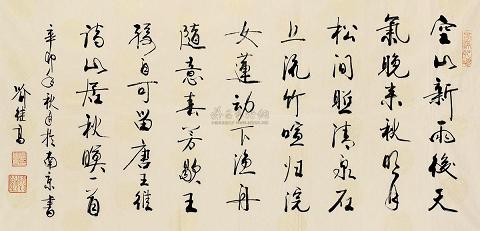 空山新雨後天
氣晚来秋明月
松间照清泉石
上流竹喧归浣
女蓮动下渔舟
隨意春芳歇王
孫自可留唐王维
诗山居秋暝一首
辛卯年秋月於南京書
喻继高